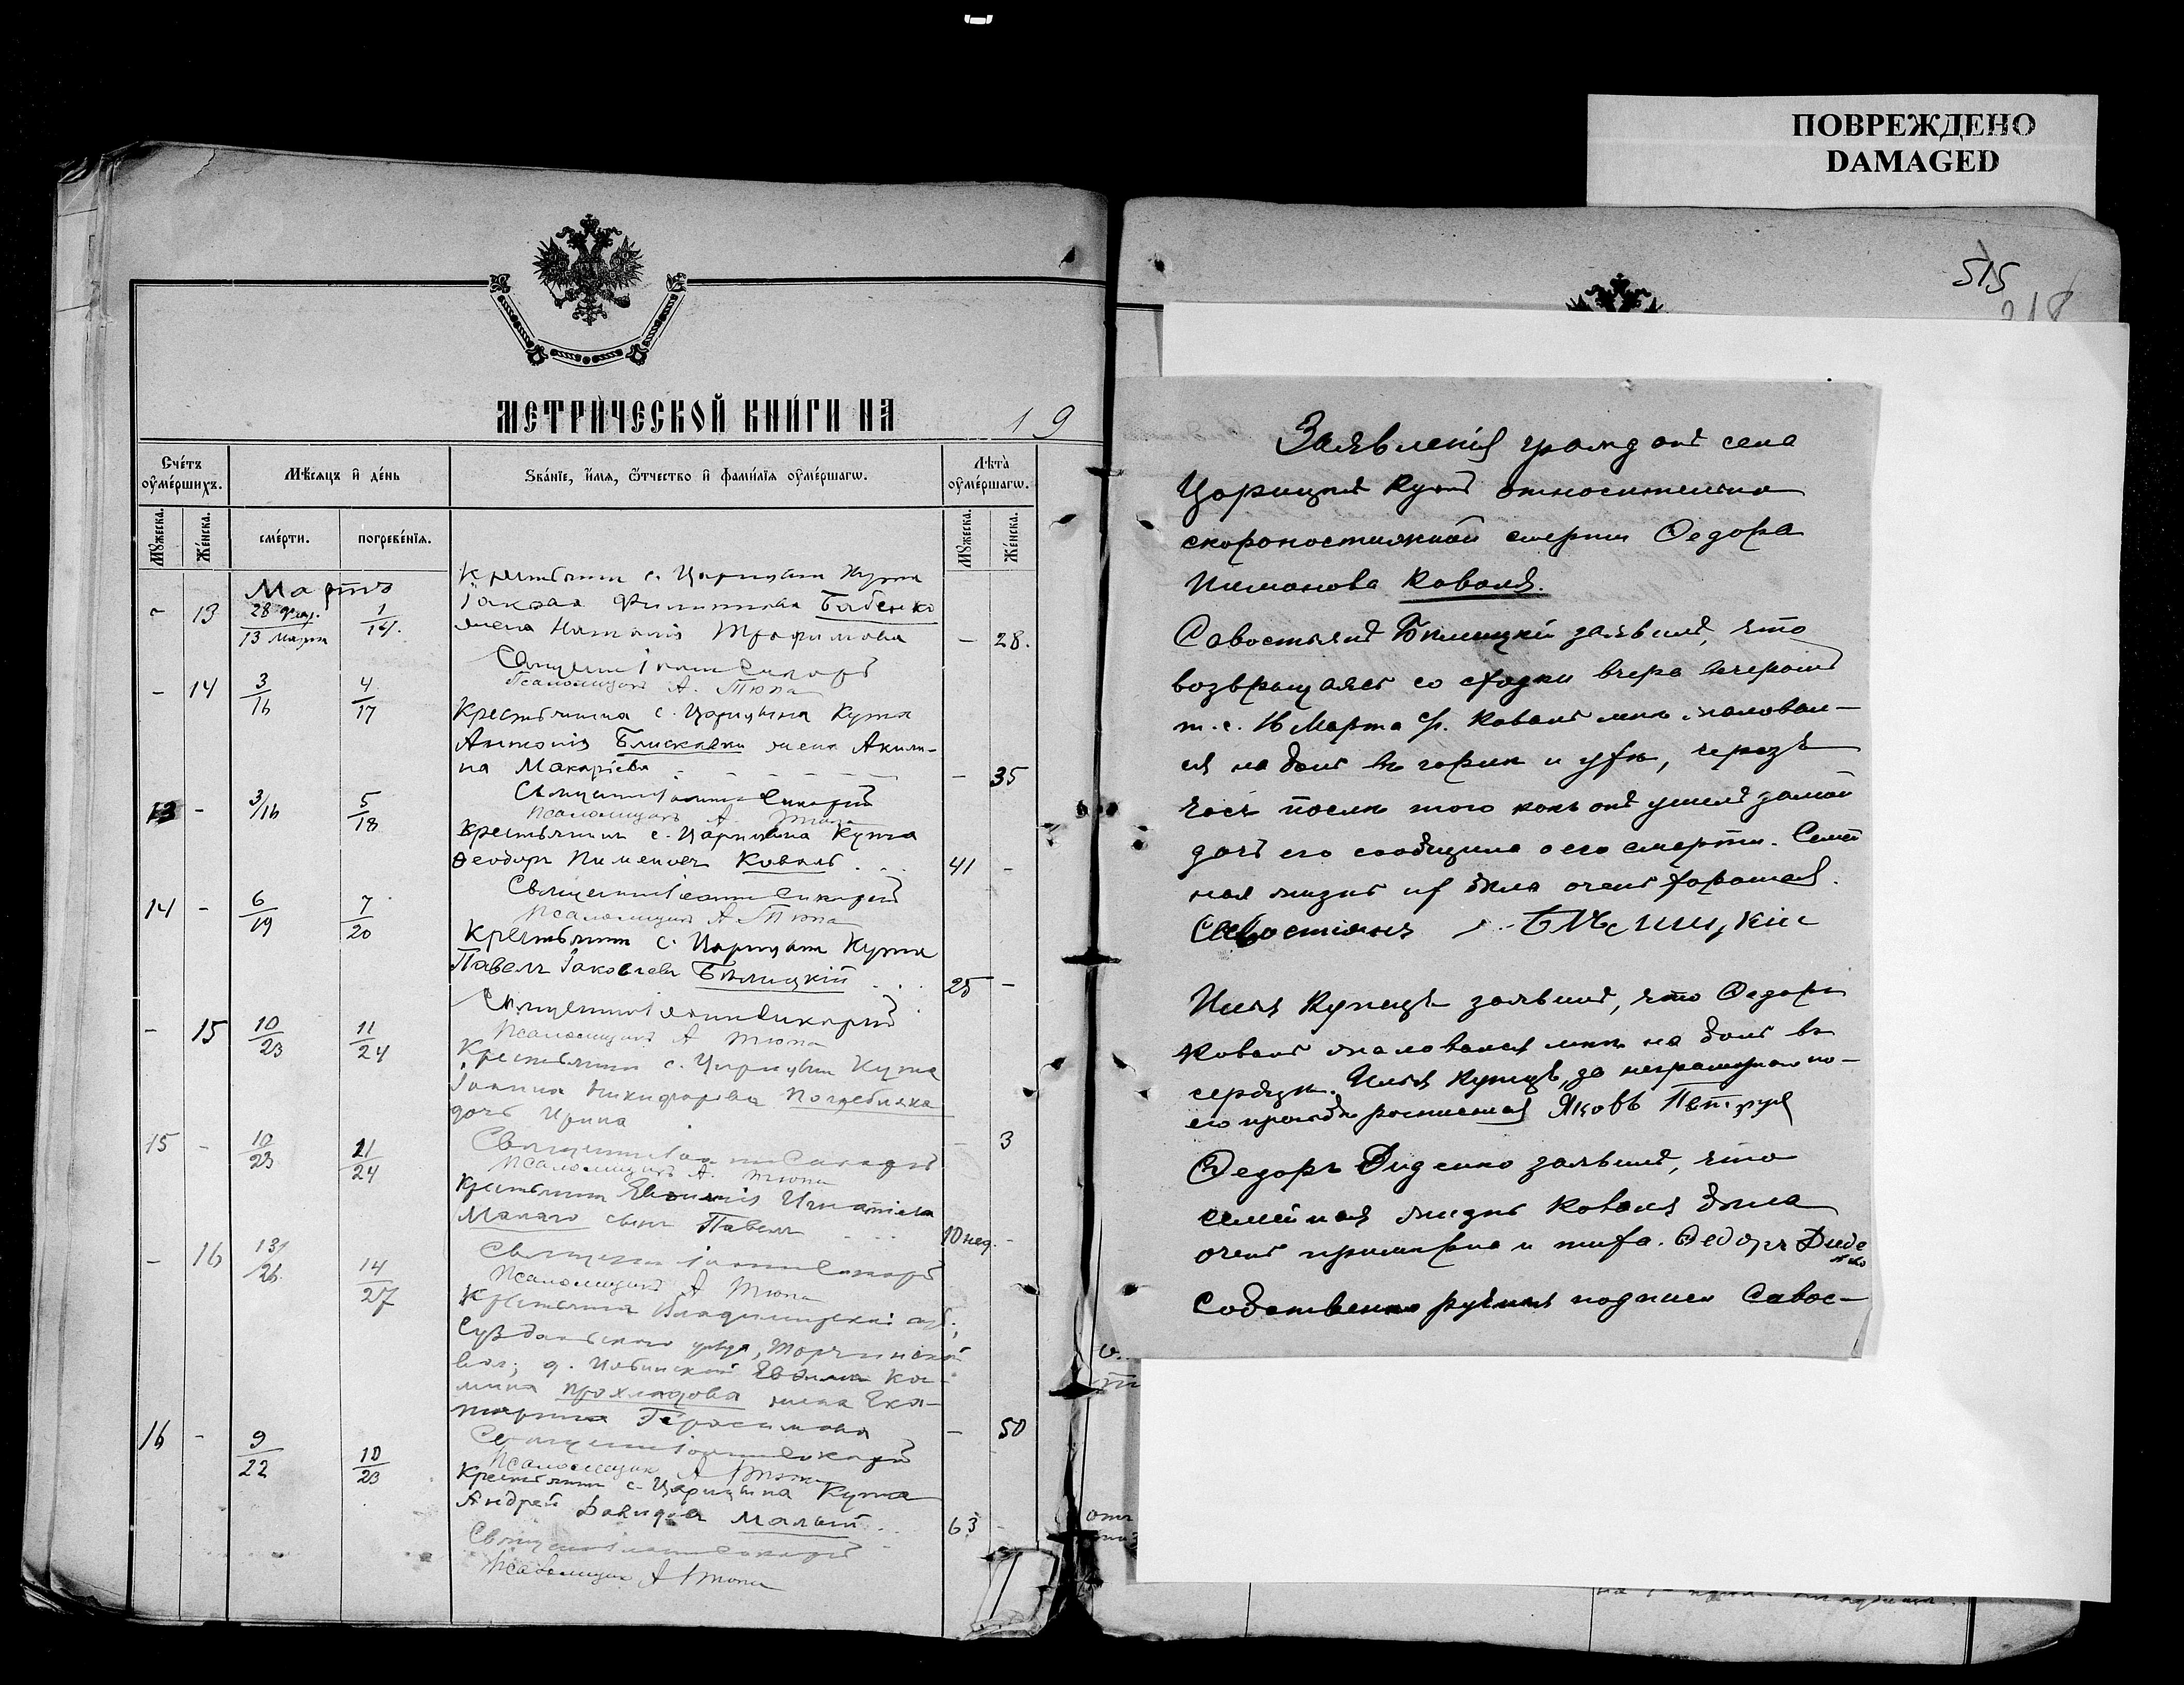 ПОВРЕЖДЕНО
DAMAGED
МЕТРИЧЕСКОЙ КНИГИ НА 19
Счетъ оумершихъ.
Мѣсяцъ и день
Званіе, имя, отчество и фамилія оумершаго.
Лѣта оумершаго.
Мужеска.
Женска.
смерти.
погребенія.
Мужеска.
Женска.
Мартъ
- 13 28 фев. 13 марта 1/14.
Крестьянина с. Царицына Кута
Іакова Филиппова Бабенко
жена Наталія Трофимова - 28.
Священникъ Іоаннъ
Псаломщикъ А. Тюпа
- 14 3/16 4/17
Крестьянина с. Царицына Кута
Антонія Блискавки жена Акили-
на Макаріева - 35
Священникъ Іоаннъ
Псаломщикъ А. Тюпа
13 - 3/16 5/18
Крестьянинъ с. Царицына Кута
Ѳеодоръ Пименовъ Коваль 41 -
Священникъ Іоаннъ
Псаломщикъ А Тюпа
14 - 6/19 7/20
Крестьянинъ с. Царицына Кута
Павелъ Іаковлевъ Бѣлицкій 25 -
Священникъ Іоаннъ
Псаломщикъ А Тюпа
- 15 10/23 11/24
Крестьянина с. Царицына Кута
Іоанна Никифорова Погребняка
дочь Ирина - 3
Священникъ Іоаннъ
Псаломщикъ А. Тюпа
15 - 10/23 11/24
Крестьянина Евѳимія Игнатіева
Малаго сынъ Павелъ 10 нед. -
Священникъ Іоаннъ
Псаломщикъ А Тюпа
- 16 13/26 14/27
Крестьянина Владимирской губ.,
Суздальскаго уѣзда, Торчинской
вол., д. Евѳима Ко-
мина Прохладова жена Ека-
терина Герасимова - 50
Священникъ Іоаннъ
Псаломщикъ А Тюпа
16 - 9/22 10/23
Крестьянинъ с. Царицына Кута
Андрей Давидовъ Малый 63 -
Священникъ Іоаннъ
Псаломщикъ А Тюпа
515
218
Заявленія граждане села
Царицынъ Кутъ относительно
скоропостижной смерти Федора
Пиманова Коваля.
Савостьянъ Билицкій заявилъ, что
возвращаясь со сходки вчера вечеромъ
т. е. 16 Марта Ф. Коваль мнѣ жаловал-
ся на боль въ горлѣ и ухѣ, черезъ
часъ послѣ того какъ онъ ушелъ домой
дочь его сообщила о его смерти. Семей
ная жизнь их была очень хорошая.
Савостіянъ Бѣлицкій
Илья Купецъ заявилъ, что Федоръ
Коваль жаловался мнѣ на боль въ
сердцѣ. Илья Купецъ, за неграмотнаго по-
его просьбѣ росписался Яковъ
Федоръ Диденко заявилъ, что
семейная жизнь Коваля была
очень примирна и тиха. Федоръ Диде
нко
Собственно ручныя подписи Савос-